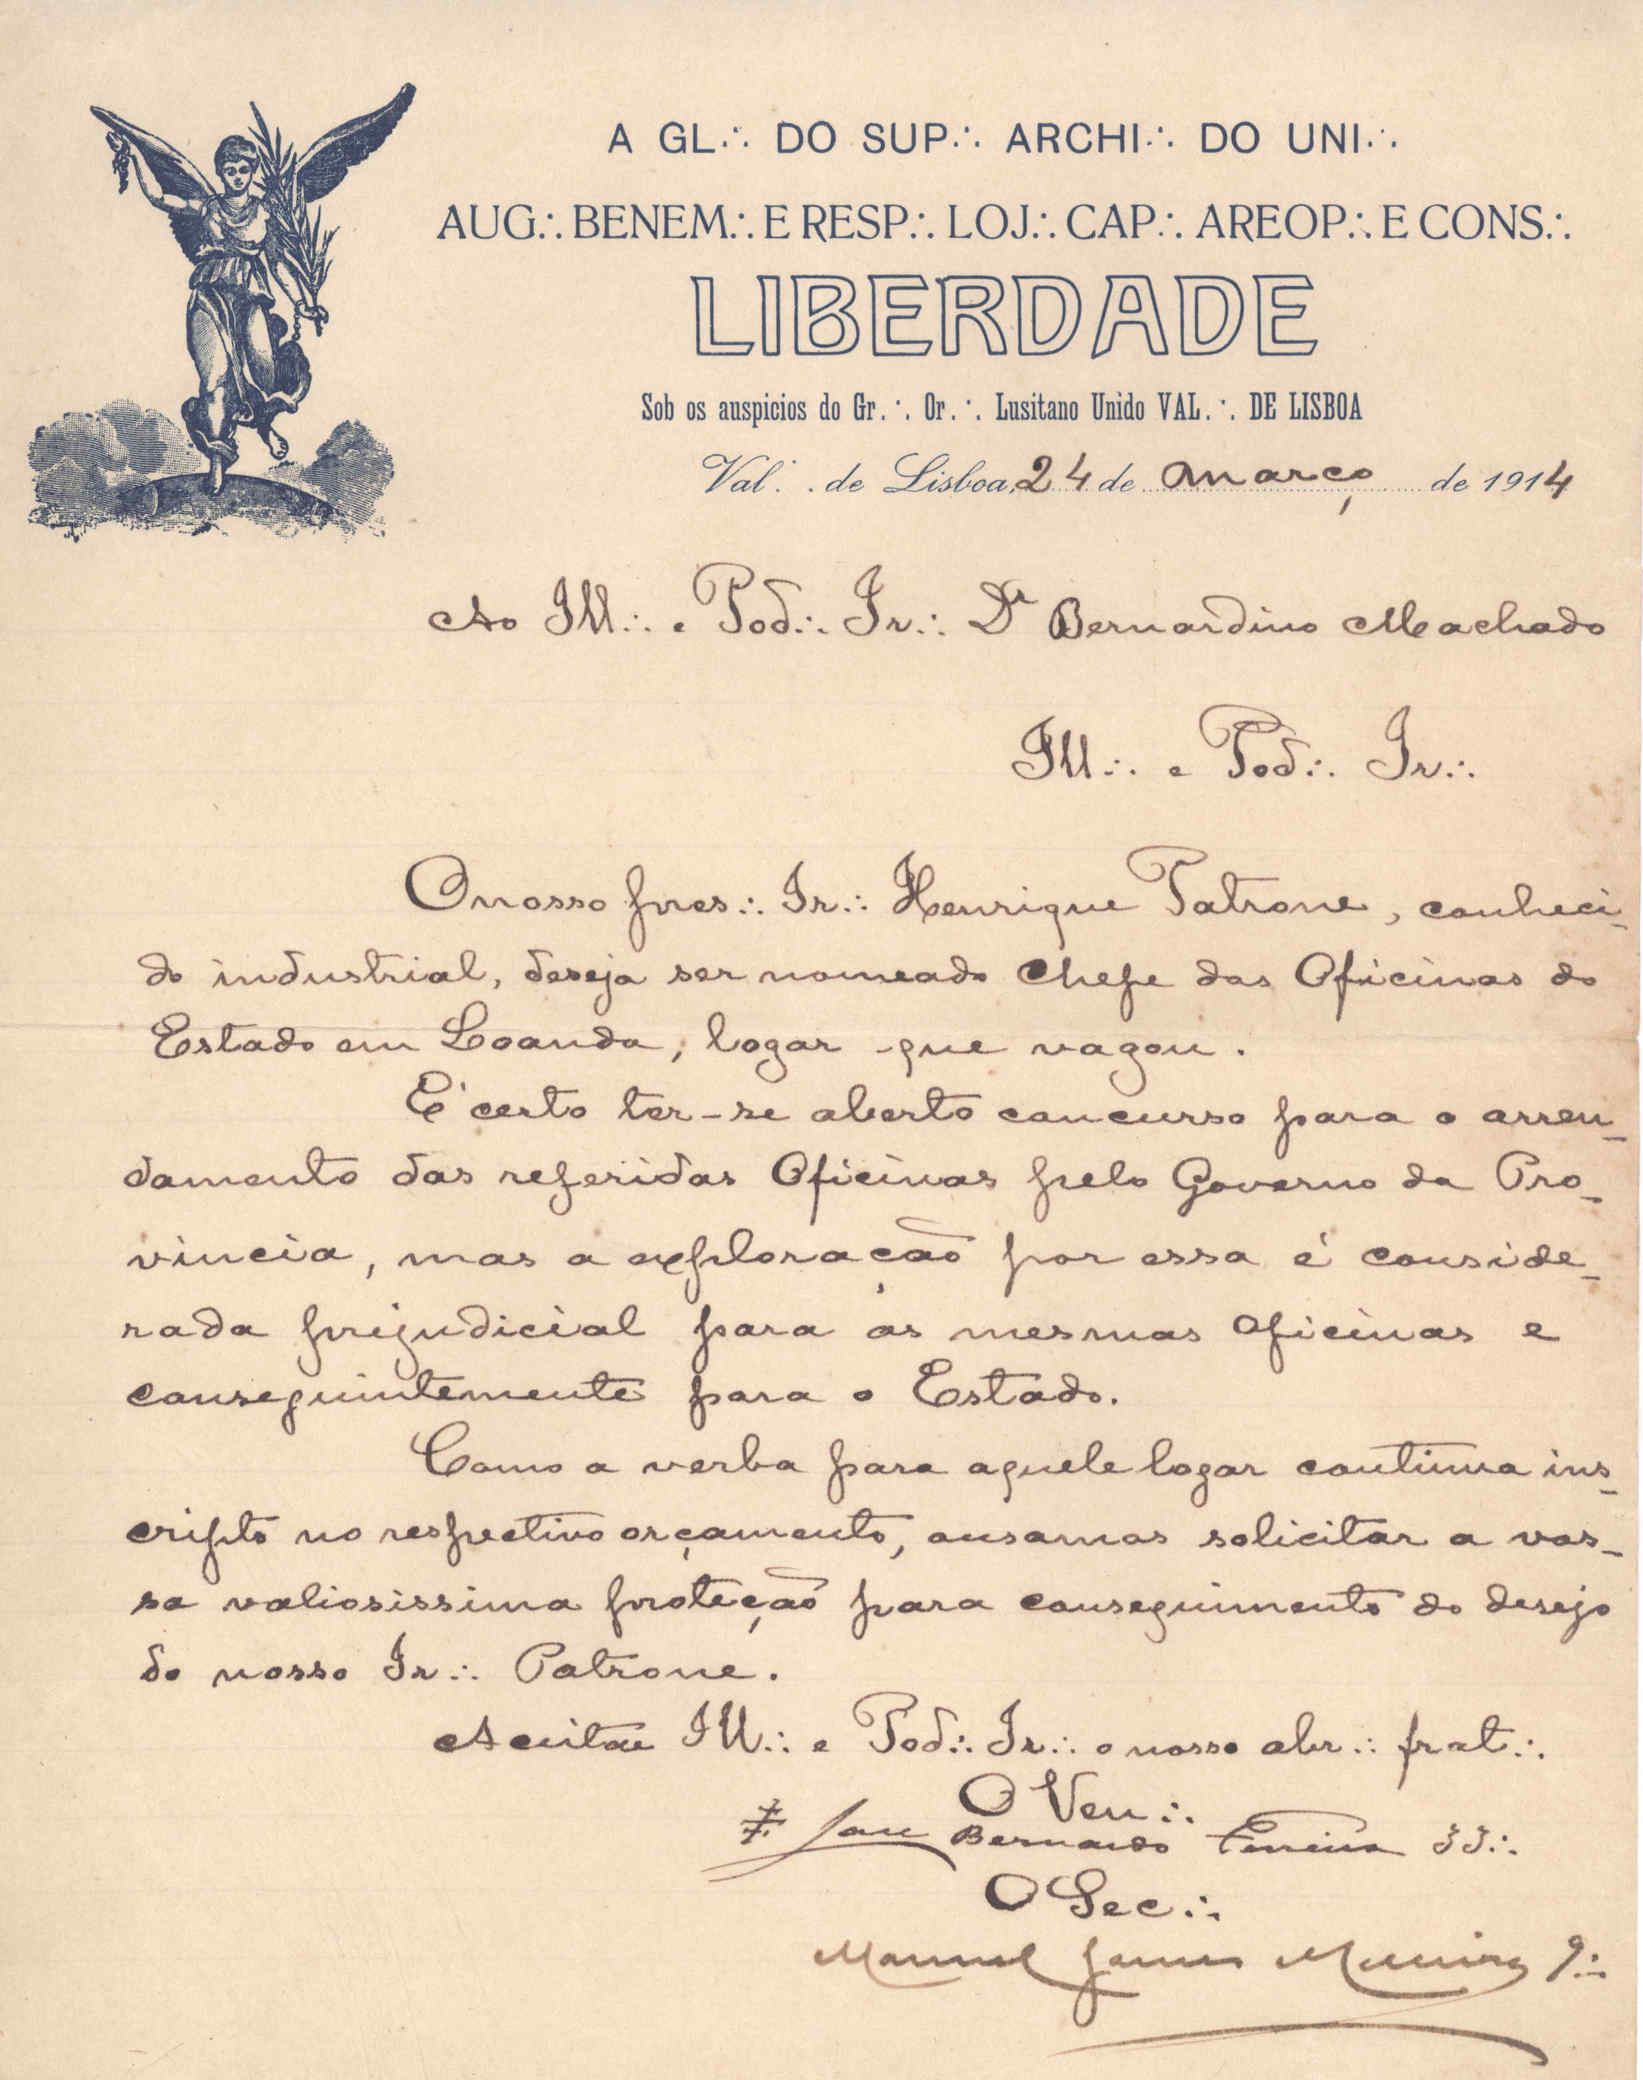 A GL∴ DO SUP∴ ARCHI∴ DO UNI∴
AUG∴ BENEM∴ E RESP∴ LOJ∴ CAP∴ AREOP∴ E CONS∴
LIBERDADE
Sob os auspicios do Gr∴ Or∴ Lusitano Unido VAL∴ DE LISBOA
Val∴ de Lisboa, 24 de Março de 1914
Ao Ill∴ e Pod∴ Ir∴ Dr Bernardino Machado
Ill∴ e Pod∴ Ir∴
O nosso pres∴ Ir∴ Henrique Patrone, conheci-
do industrial, deseja ser nomeado Chefe das Oficinas do
Estado em Loanda, logar que vagou.
É certo ter-se aberto concurso para o arren-
damento das referidas Oficinas pelo Governo da Pro-
vincia, mas a exploração por essa é conside-
rada prejudicial para as mesmas Oficinas e
conseguintemente para o Estado.
Como a verba para aquele logar continua ins-
cripto no respectivo orçamento, ousamos solicitar a vos-
sa valiosissima proteção para conseguimento do desejo
do nosso Ir∴ Patrone.
Aceitae Ill∴ e Pod∴ Ir∴ o nosso abr∴ frat∴
O Ven∴
José Bernardo Ferreira 33∴
O Sec∴
Manuel 9∴